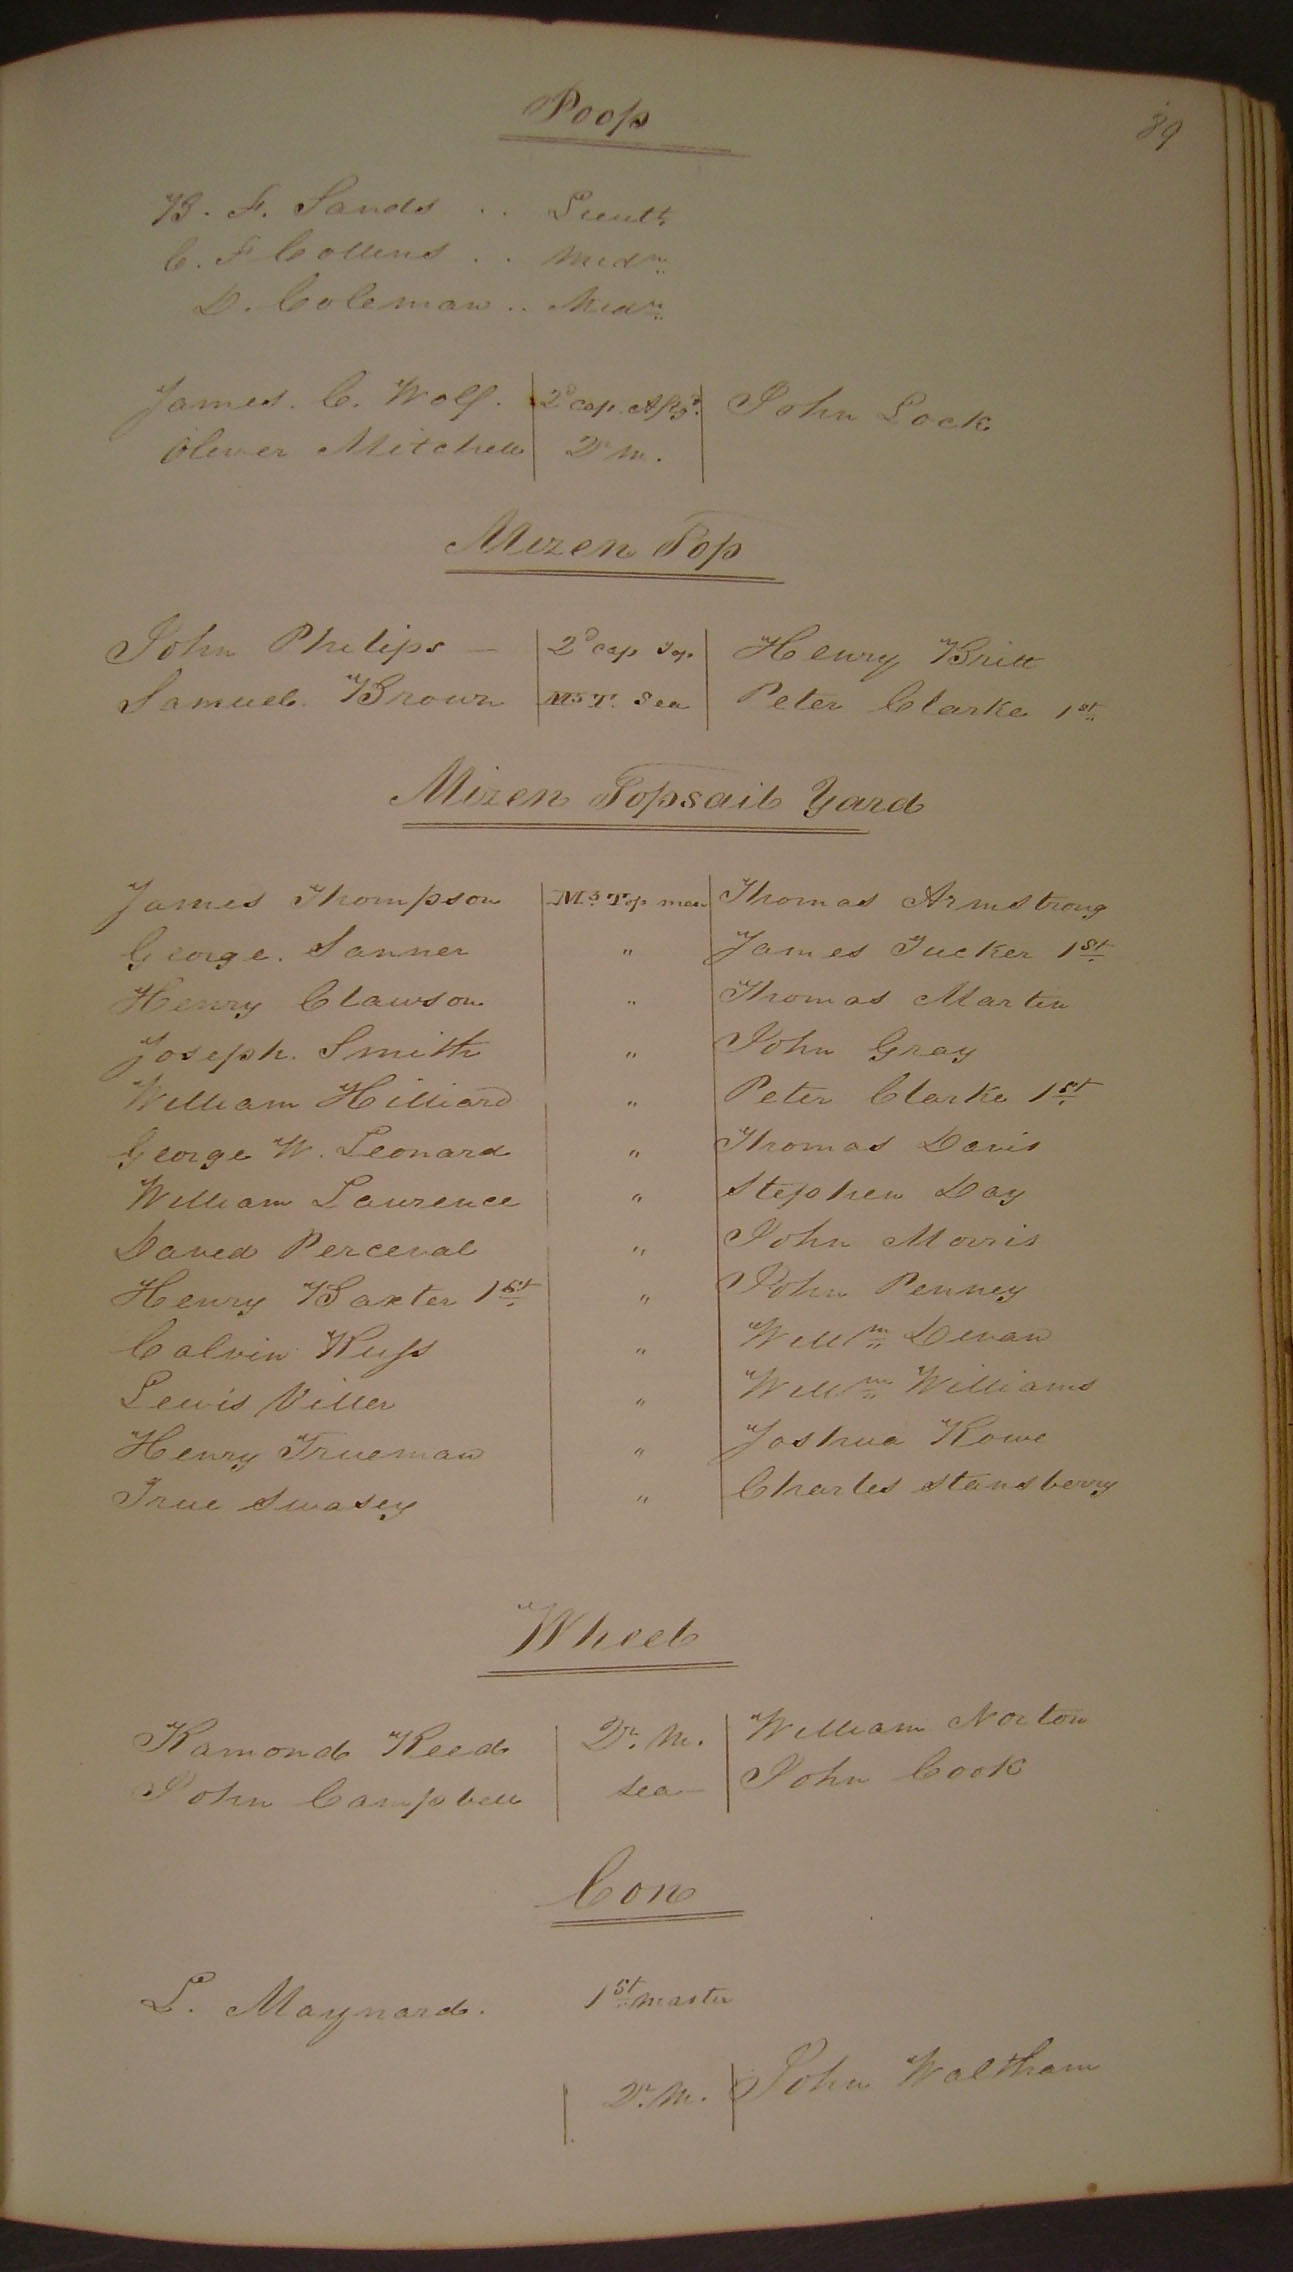 89
Poop
B. F. Sands .. Lieutt.
C. F Collins .. Midn.
D. Coleman .. Midn.
James. C. Wolf. 2d Cap. Aftgd. John Lock
Oliver Mitchell Qr M. 
Mizen Top
John Philips — 2d Cap Top Henry Britt
Samuel Brown Mz T. Sea Peter Clarke 1st
Mizen Topsail Yard
James Thompson Mz Top men Thomas Armstrong
George. Sanner " James Tucker 1st
Henry Clawson " Thomas Martin
Joseph. Smith " John Gray
William Hilliard " Peter Clarke 1st
George W. Leonard " Thomas Davis
William Laurence " Stephen Day
David Perceval " John Morris
Henry Baxter 1st " John Penney
Calvin Russ " Willm Devan
Lewis Viller " Willm Williams
Henry Trueman " Joshua Rowe
True Swasey " Charles Stansberry
Wheel
Ramond Reed Qr. M. William Norton
John Campbell Sea John Cook
Con
L. Maynard. 1st master
Qr. M. John Waltham